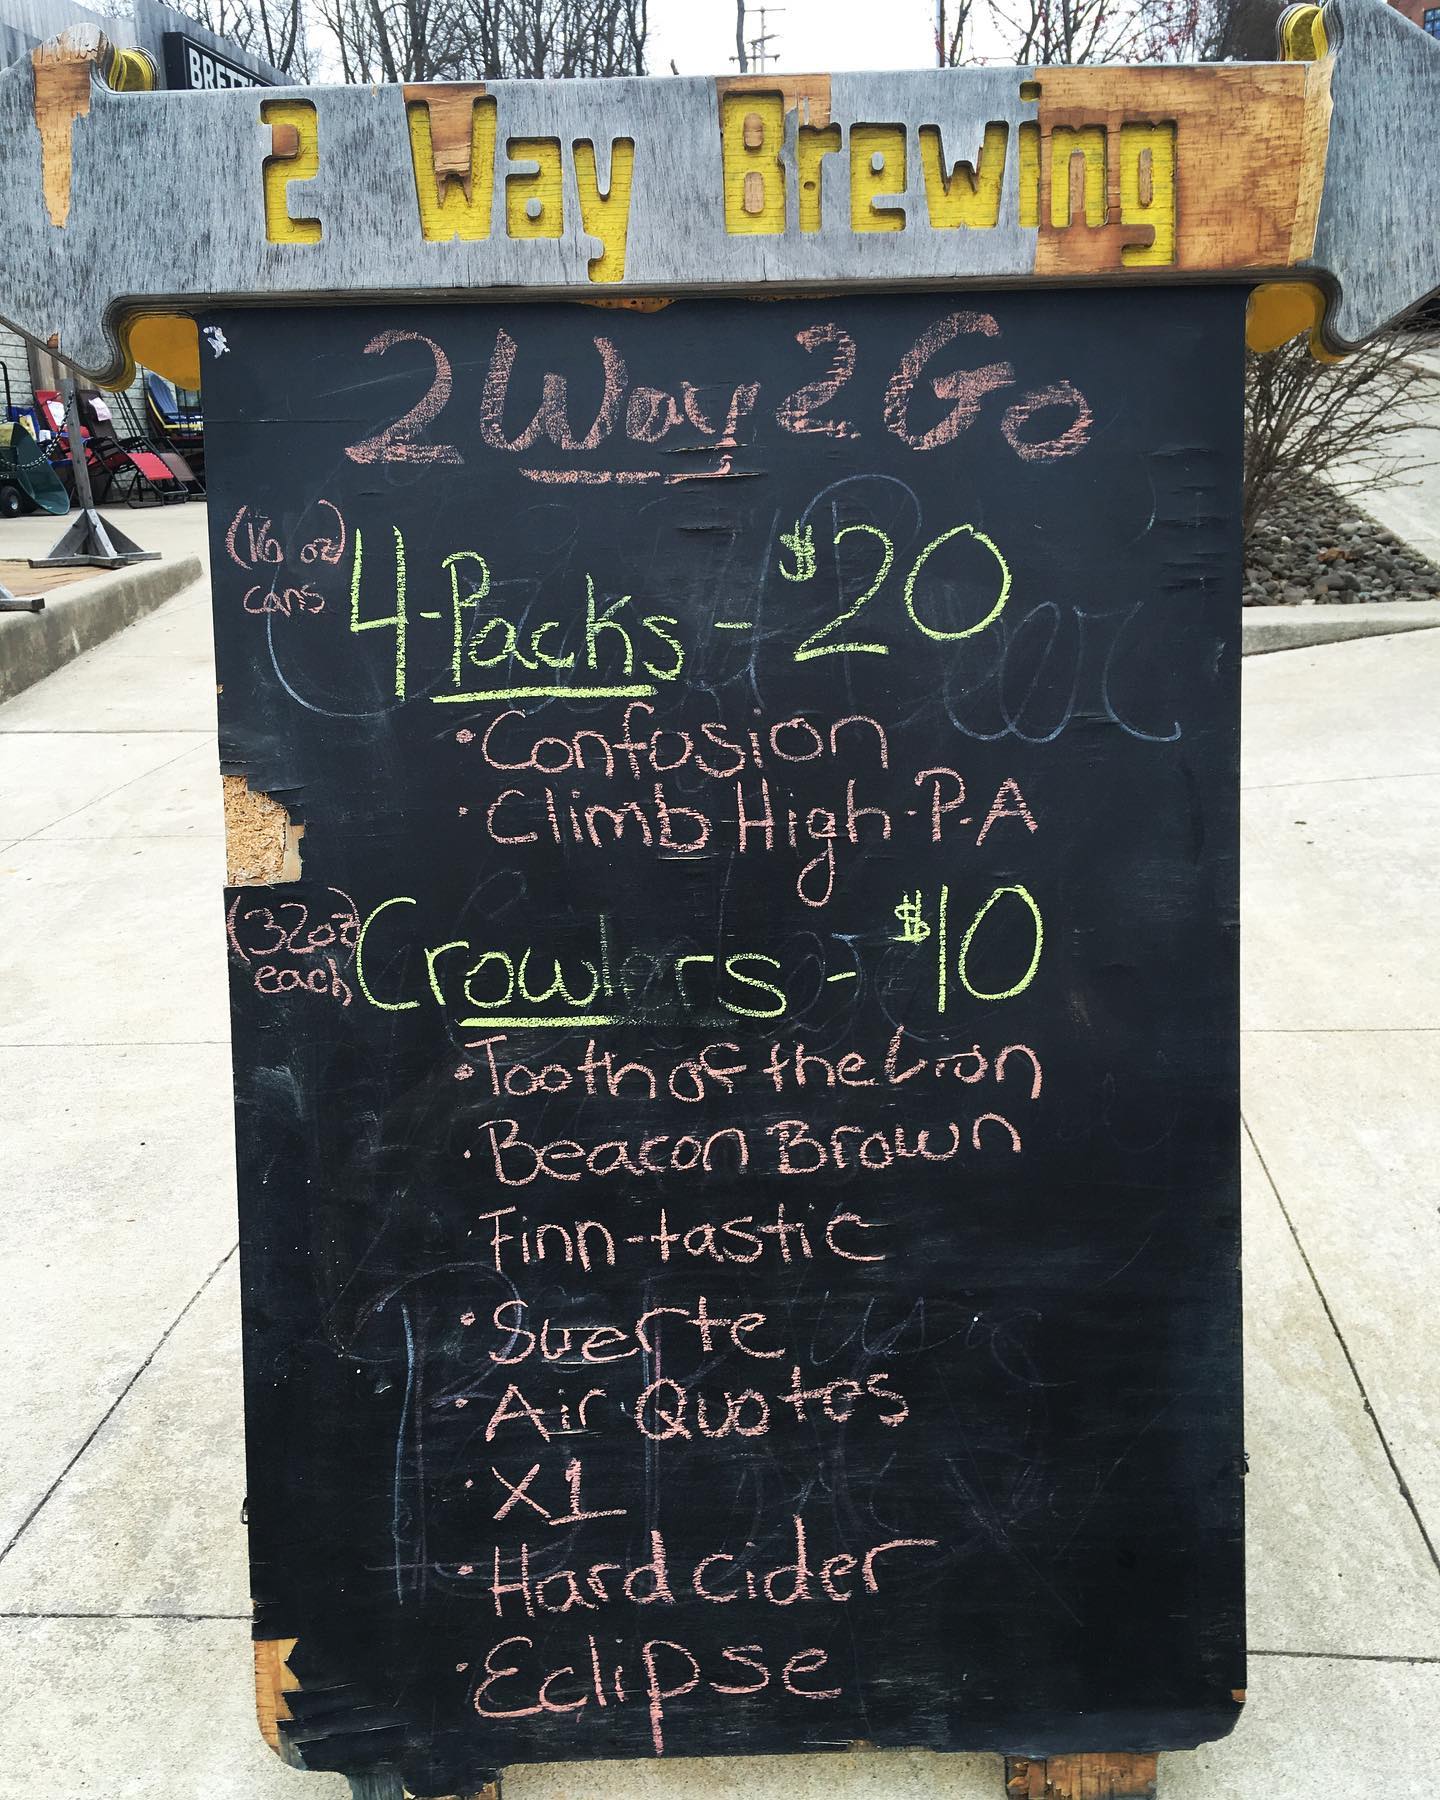 2 Way Brewing
2Way2Go
(16 oz) cans
4-Packs - $20
• Confusion
• Climb High-P-A
(32oz) each
Crowlers - $10
• Tooth of the Lion
• Beacon Brown
• Finn-tastic
• Suerte
• Air Quotes
• X1
• Hard cider
• Eclipse